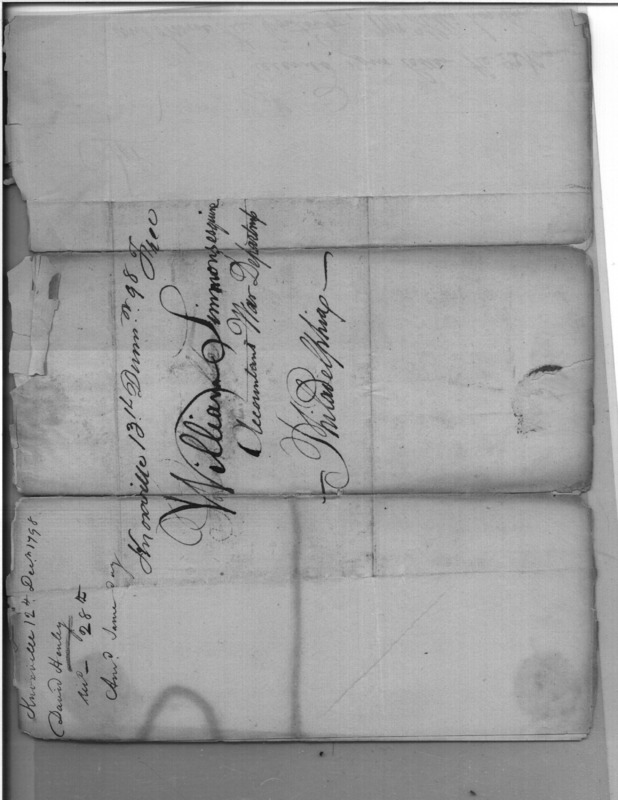 Knoxville 13th Decem.er 98 Free
William Simmons esquire
Accountant War Department
Philadelphia
Knoxville 12th Decr 1798
David Henley
recd 28th
Ansd Same day